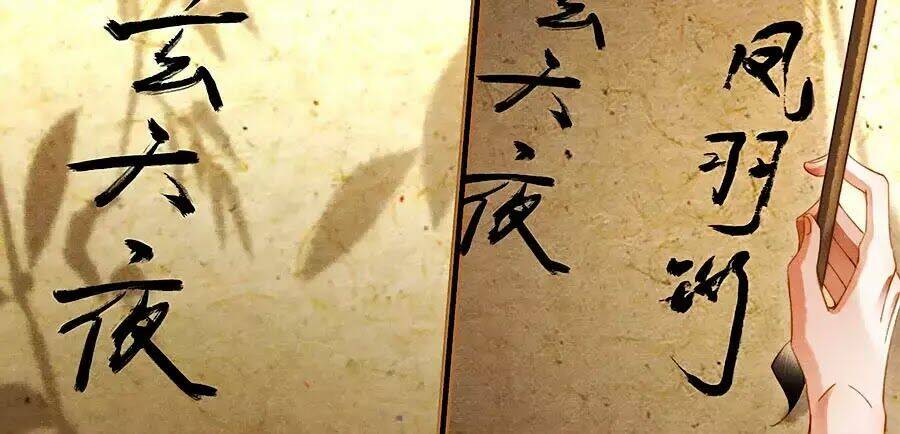 玄大夜
玄大夜
凤羽珩